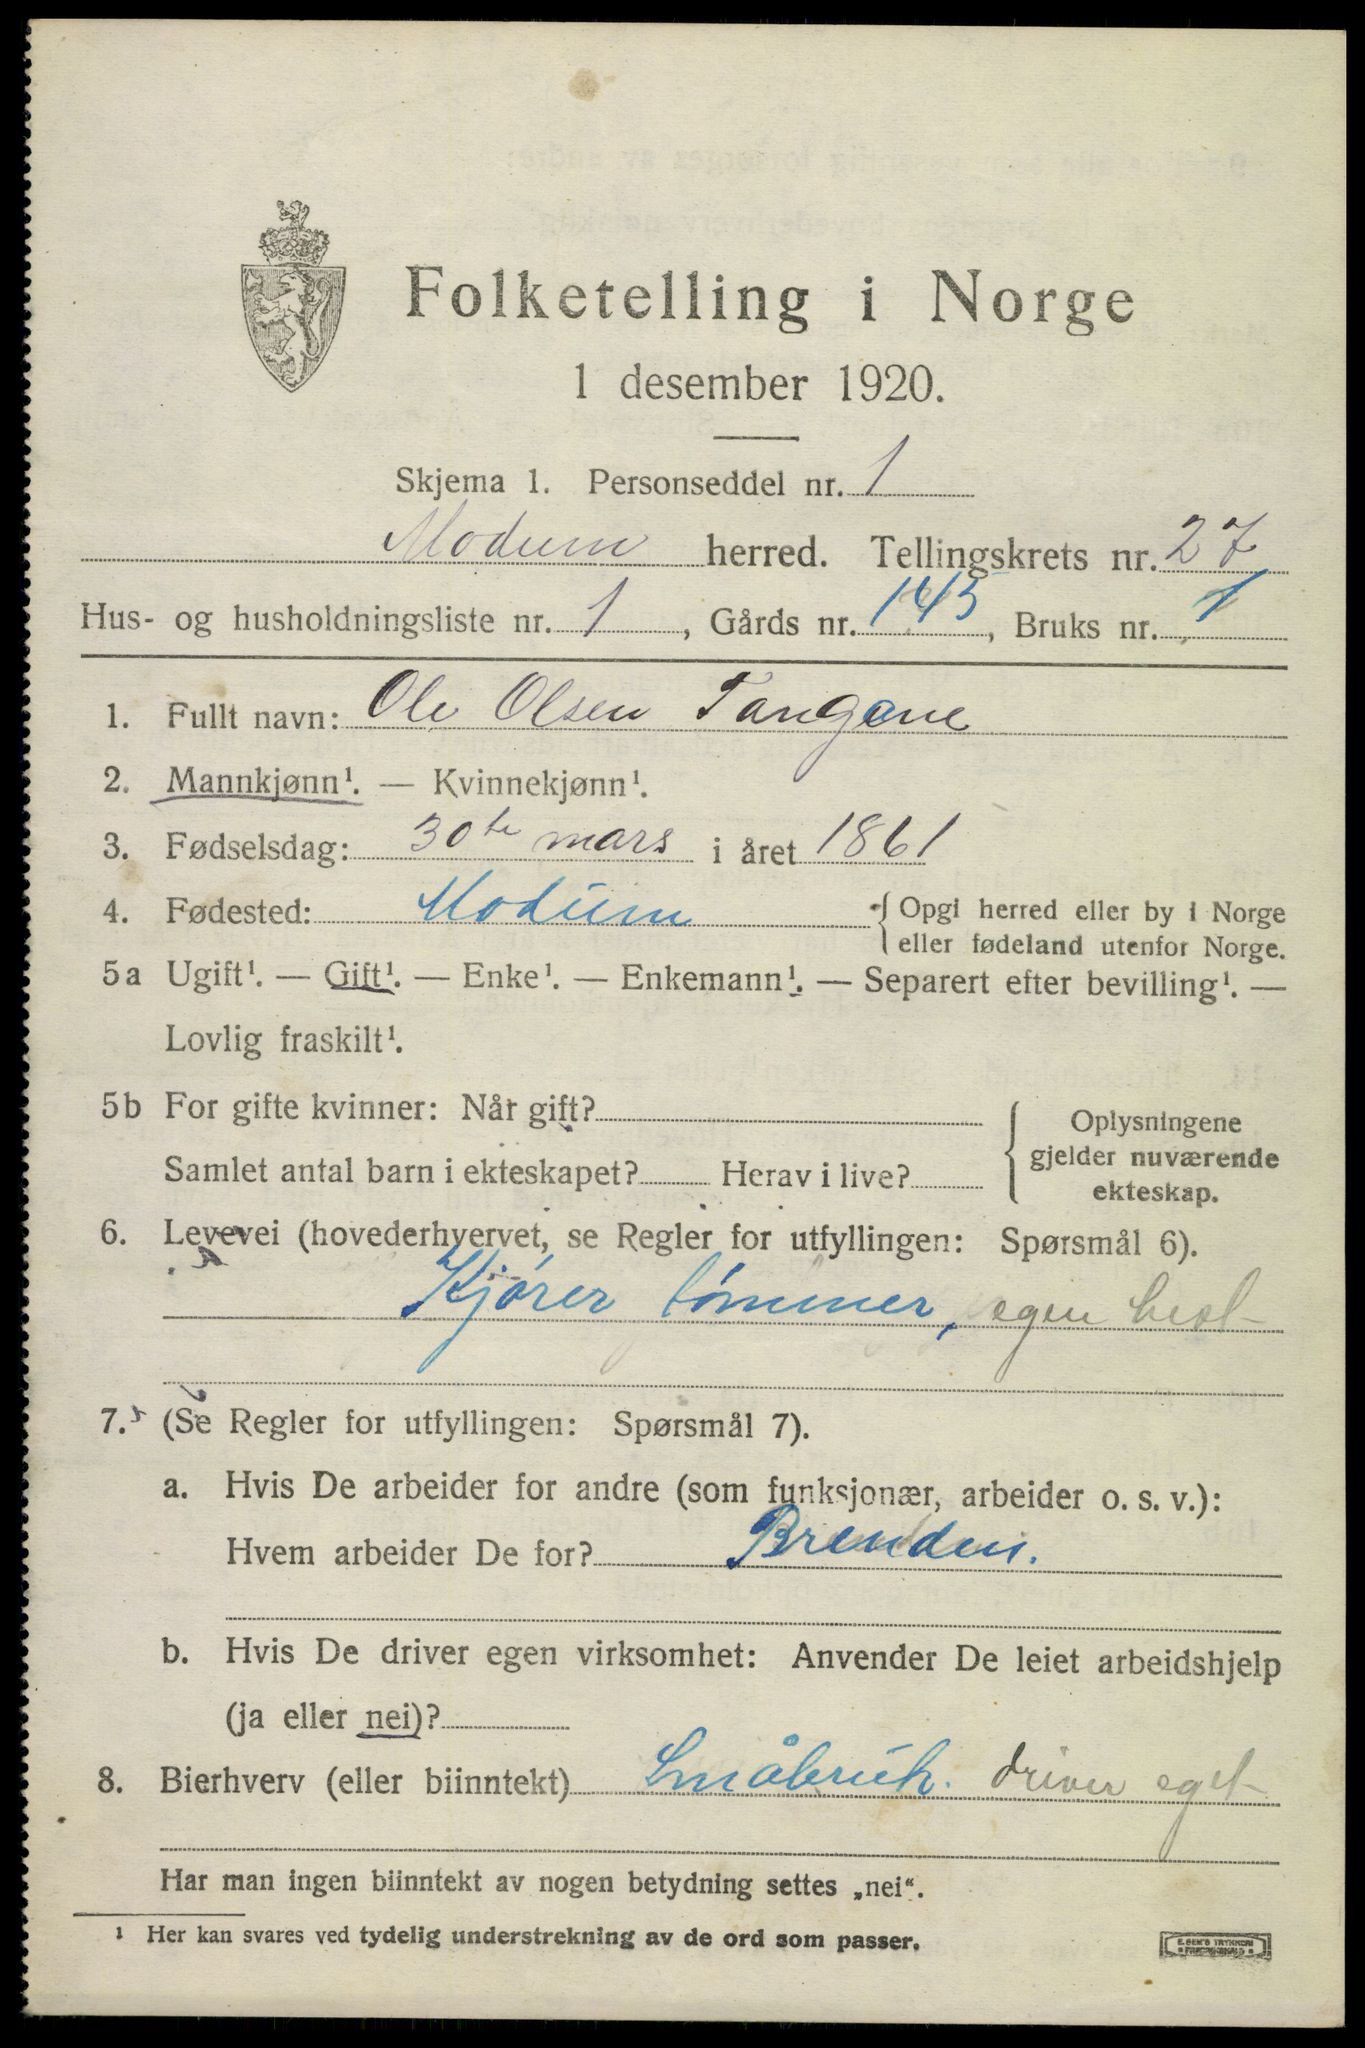 Folketelling i Norge
1 desember 1920.
Skjema 1. Personseddel nr. 1
Modum herred. Tellingskrets nr. 27
Hus- og husholdningsliste nr. 1, Gårds nr. 145, Bruks nr. 1
1. Fullt navn: Ole Olsen Tangene
2. Mannkjønn¹. — Kvinnekjønn¹.
3. Fødselsdag: 30te mars i året 1861
4. Fødested: Modum { Opgi herred eller by i Norge
eller fødeland utenfor Norge.
5a Ugift¹. — Gift¹. — Enke¹. — Enkemann¹. — Separert efter bevilling¹. —
Lovlig fraskilt¹.
5b For gifte kvinner: Når gift?
Samlet antal barn i ekteskapet? Herav i live?
{ Oplysningene
gjelder nuværende
ekteskap.
6. Levevei (hovederhvervet, se Regler for utfyllingen: Spørsmål 6).
Kjører tømmer, egen hest
7. (Se Regler for utfyllingen: Spørsmål 7).
a. Hvis De arbeider for andre (som funksjonær, arbeider o. s. v.):
Hvem arbeider De for? Brenden.
b. Hvis De driver egen virksomhet: Anvender De leiet arbeidshjelp
(ja eller nei)?
8. Bierhverv (eller biinntekt) Småbruk. driver eget
Har man ingen biinntekt av nogen betydning settes „nei“.
¹ Her kan svares ved tydelig understrekning av de ord som passer.